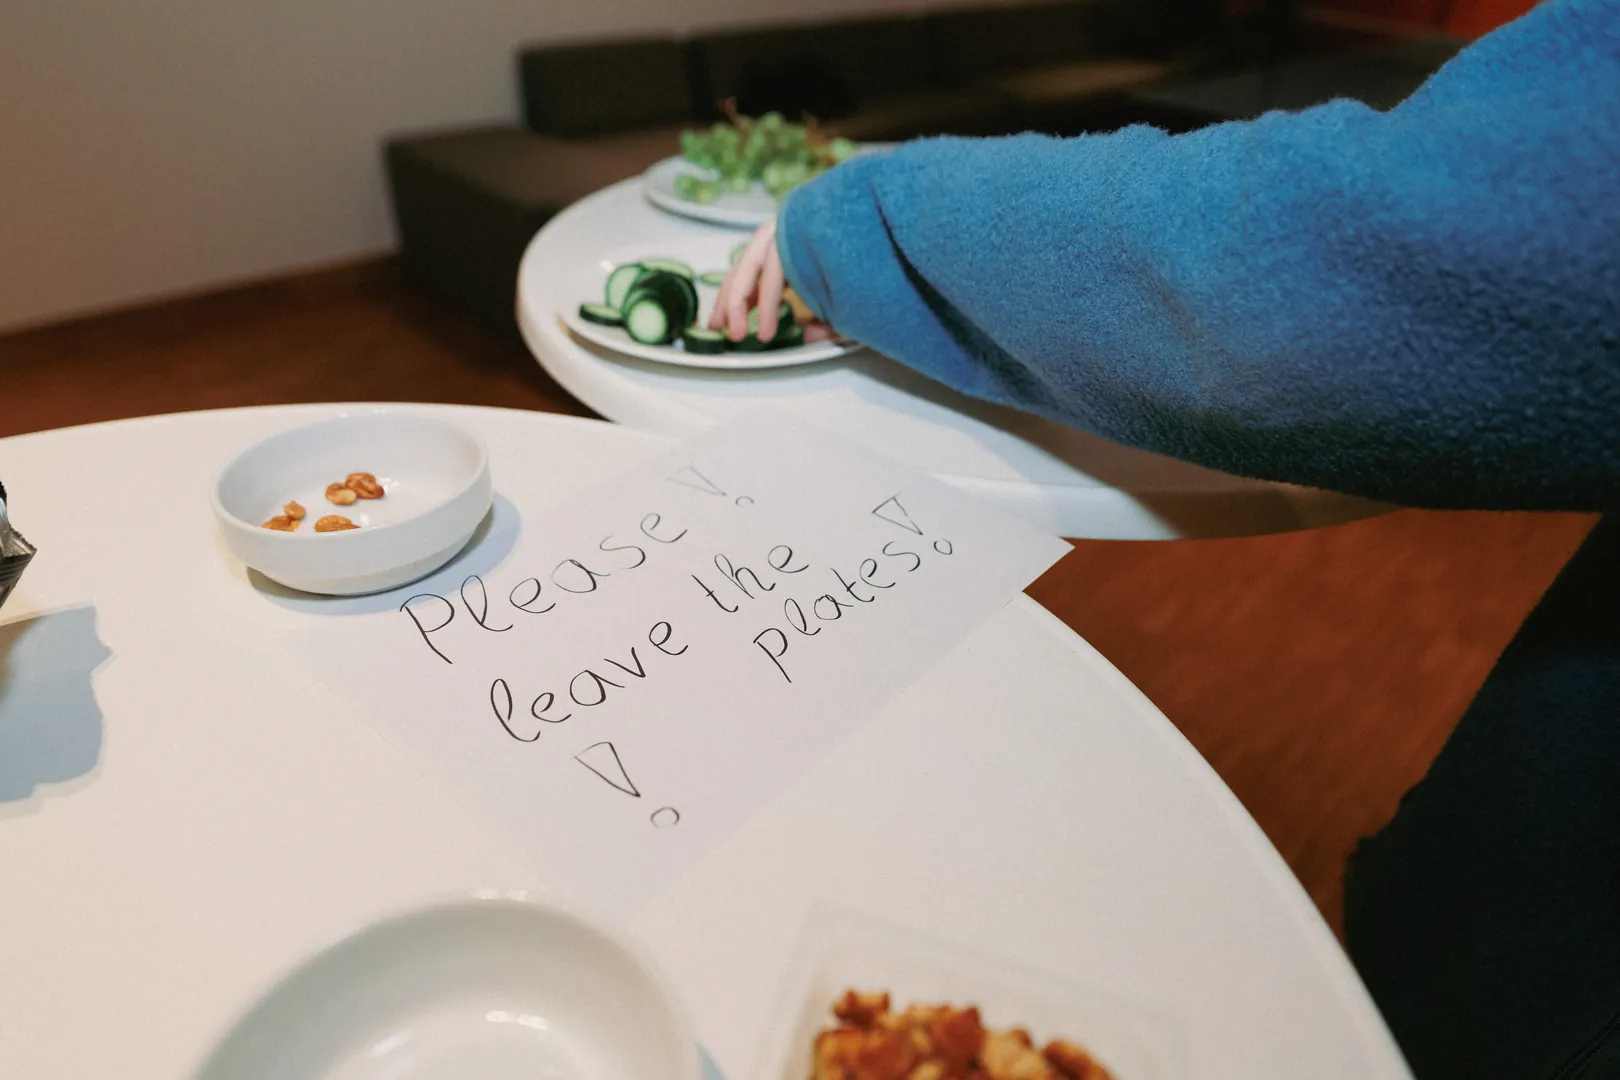 Please!
leave the
plates!
!